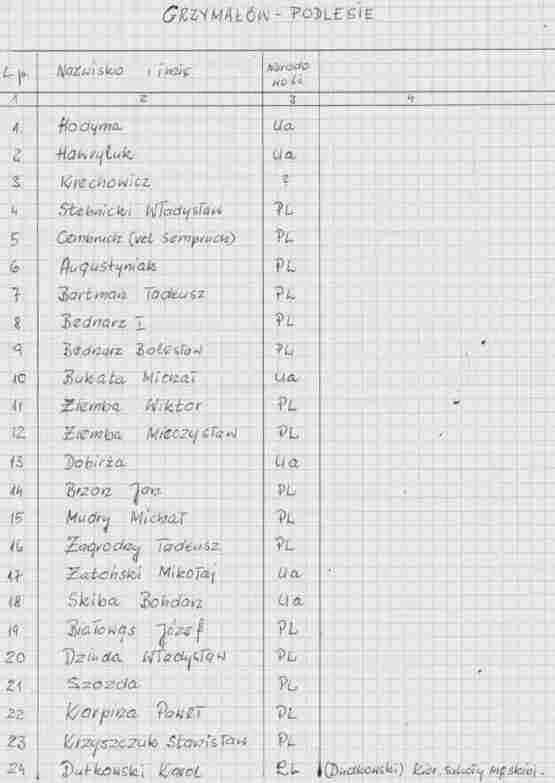 GRZYMAŁÓW - PODLESIE
L.p. Nazwisko i imię Narodo
wość
1 2 3 4
1 Kodyma Ua
2 Hawryluk Ua
3 Krechowicz ?
4 Stebnicki Władysław PL
5 Cembruch (vel Sempruch) PL
6 Augustyniak PL
7 Bartman Tadeusz PL
8 Bednarz I PL
9 Bednarz Bolesław PL
10 Bukata Michał Ua
11 Ziemba Wiktor PL
12 Ziemba Mieczysław PL
13 Dobirża Ua
14 Brzon Jan PL
15 Mudry Michał PL
16 Zagrodny Tadeusz PL
17 Zatoński Mikołaj Ua
18 Skiba Bohdan Ua
19 Białowąs Józef PL
20 Dziuda Władysław PL
21 Szozda PL
22 Karpina Paweł PL
23 Krzyszczuk Stanisław PL
24 Dutkowski Karol PL (Dudkowski) Kier. szkoły męskiej.